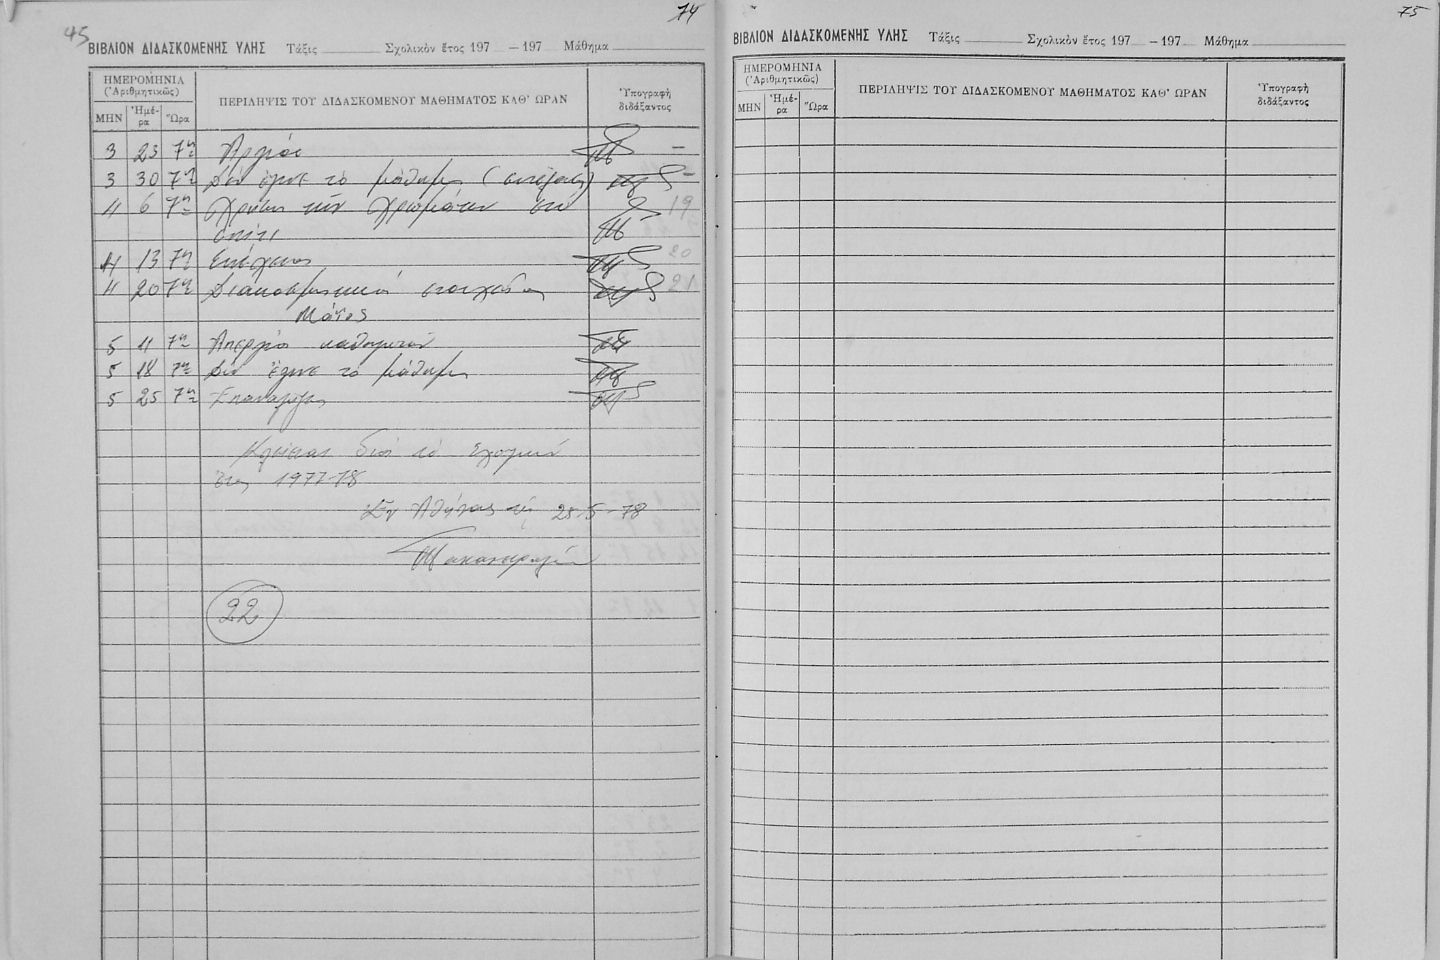 45
74
ΒΙΒΛΙΟΝ ΔΙΔΑΣΚΟΜΕΝΗΣ ΥΛΗΣ Τάξις Σχολικὸν ἔτος 197 – 197 Μάθημα
ΗΜΕΡΟΜΗΝΙΑ
(Ἀριθμητικῶς)
ΜΗΝ Ἡμέ-ρα Ὥρα
ΠΕΡΙΛΗΨΙΣ ΤΟΥ ΔΙΔΑΣΚΟΜΕΝΟΥ ΜΑΘΗΜΑΤΟΣ ΚΑΘ' ΩΡΑΝ
Ὑπογραφὴ
διδάξαντος
3 23 7η Ἀργία –
3 30 7η Δέν ἔγινε τό μάθημα –
4 6 7η Χρῆσις τῶν χρωμάτων στό 19
σπίτι
4 13 7η Συνέχεια 20
4 20 7η Διακοσμητικά στοιχεῖα 21
Μάϊος
5 11 7η Ἀπεργία καθηγητῶν
5 18 7η Δέν ἔγινε τό μάθημα
5 25 7η Ἐπανάληψις
Κλείεται διά τό σχολικόν
ἔτος 1977-78
Ἐν Ἀθήναις τῇ 25-5-78
22
75
ΒΙΒΛΙΟΝ ΔΙΔΑΣΚΟΜΕΝΗΣ ΥΛΗΣ Τάξις Σχολικὸν ἔτος 197 – 197 Μάθημα
ΗΜΕΡΟΜΗΝΙΑ
(Ἀριθμητικῶς)
ΜΗΝ Ἡμέ-ρα Ὥρα
ΠΕΡΙΛΗΨΙΣ ΤΟΥ ΔΙΔΑΣΚΟΜΕΝΟΥ ΜΑΘΗΜΑΤΟΣ ΚΑΘ' ΩΡΑΝ
Ὑπογραφὴ
διδάξαντος